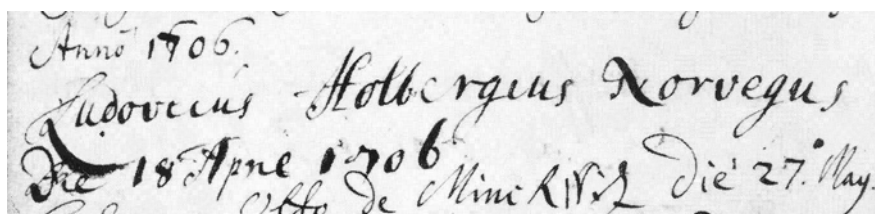 Anno 1706.
Ludovicus Holbergius Norvegus
Die 18 Apriе 1706
Otto de die 27. May.